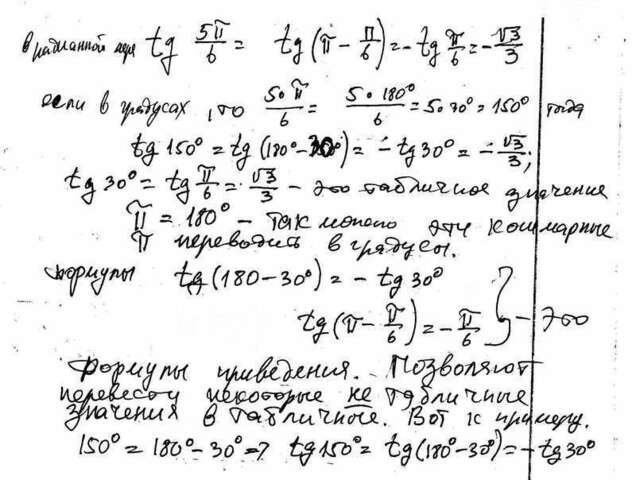 в радианной мере tg 5π/6 = tg(π - π/6) = -tg π/6 = -√3/3
если в градусах, то 5·π/6 = 5·180°/6 = 5·30° = 150° тогда
tg 150° = tg(180° - 30°) = -tg 30° = -√3/3;
tg 30° = tg π/6 = √3/3 - это табличное значение
π = 180° - так можно эти кошмарные
π переводить в градусы.
формулы tg(180 - 30°) = -tg 30°
tg(π - π/6) = -π/6 } - это
Формулы приведения. Позволяют
перевести некоторые не табличные
значения в табличное. Вот к примеру.
150° = 180° - 30° => tg 150° = tg(180° - 30°) = -tg 30°